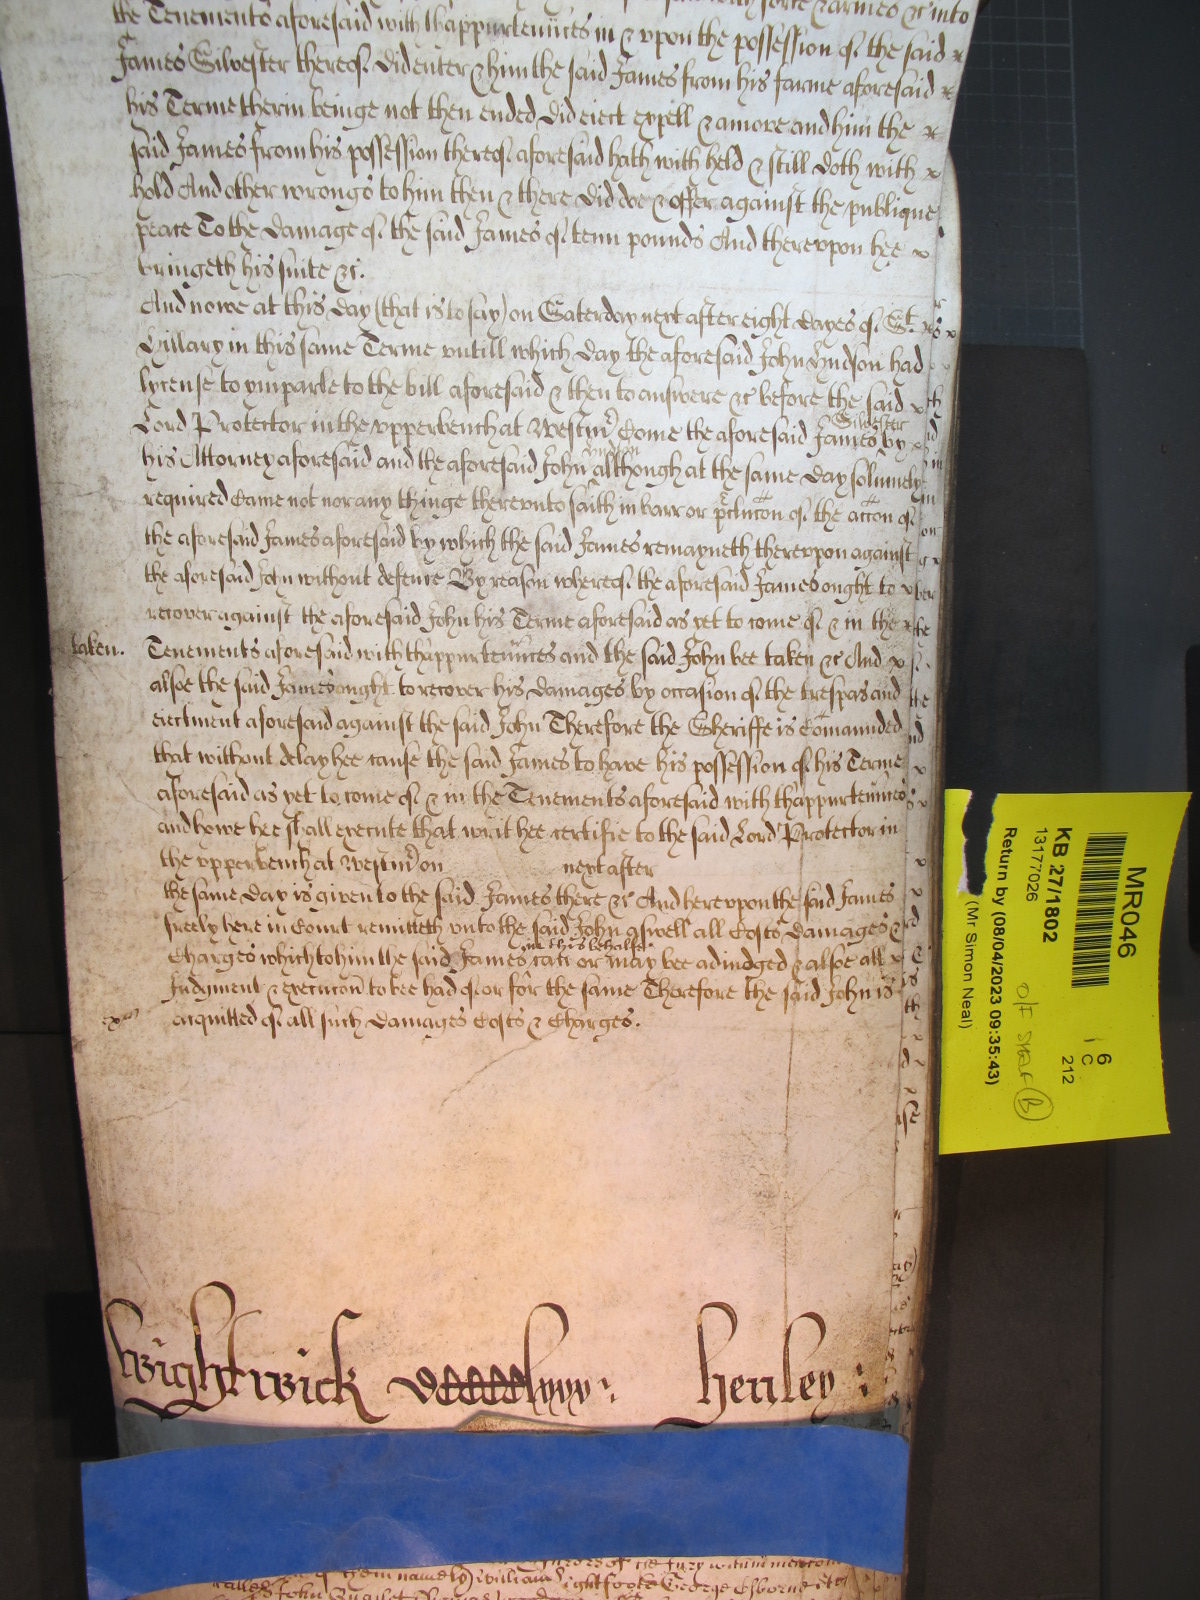 with force & armes &c into
the Tenements aforesaid with thappurtenнces in & vpon the possession of the said
James Silvester thereof did enter & him the said James from his farme aforesaid
his Terme therin beinge not then ended did eiect expell & amove and him the
said James from his possession thereof aforesaid hath with held & still doth with
hold And other wrongs to him then & there did doe & offer against the publique
peace To the damage of the said James of tenn pounds And therevpon hee
bringeth his suite &c.
And nowe at this day (that is to say) on Saterday next after eight dayes of St.
Hillary in this same Terme vntill which day the aforesaid John Hudson had
lycense to ymparle to the bill aforesaid & then to answere &c before the said
Lord Protector in the vpperbench at Westmr Come the aforesaid James Silvester by
his Attorney aforesaid and the aforesaid John Hudson although at the same day solemnely
required Came not nor any thinge therevnto saith in barr or pclucon of the accon of
the aforesaid James aforesaid by which the said James remayneth therevpon against
the aforesaid John without defence By reason whereof the aforesaid James ought to
recover against the aforesaid John his Terme aforesaid as yet to come of & in the
taken. Tenements aforesaid with thappurtennces and the said John bee taken &c And
alsoe the said James ought to recover his damages by occasion of the trespas and
eiectment aforesaid against the said John Therefore the Sheriffe is Comaunded
that without delay hee cause the said James to have his possession of his Terme
aforesaid as yet to come of & in the Tenements aforesaid with thappurtennces
and howe hee shall execute that writ hee certifie to the said Lord Protector in
the vpperbench at Westmr on next after
the same day is given to the said James there &c And herevpon the said James
freely here in Court remitteth vnto the said John aswell all Costs damages &
Charges which to him the said James in this behalfe can or may bee adiudged & alsoe all
Judgment & execucon to bee had of or for the same Therefore the said John is
acquitted of all such damages Costs & Charges.
Wightwick lxxx Henley
MR046
KB 27/1802
13177026
Return by (08/04/2023 09:35:43)
(Mr Simon Neal)
6
C
212
O/F SHELF B